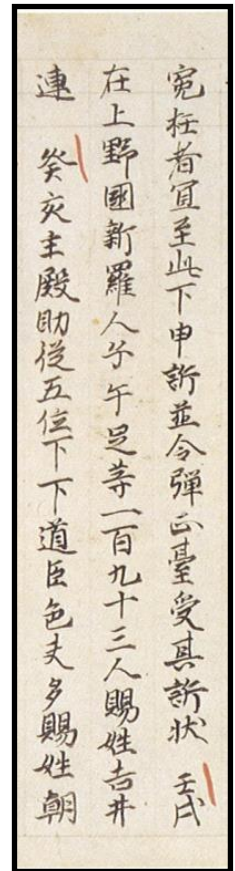 寃枉者宜至此下申訴並令弾正臺受其訴状 壬戌
在上野國新羅人子午足等一百九十三人賜姓吉井
連 癸亥主殿助従五位下下道臣色夫多賜姓朝